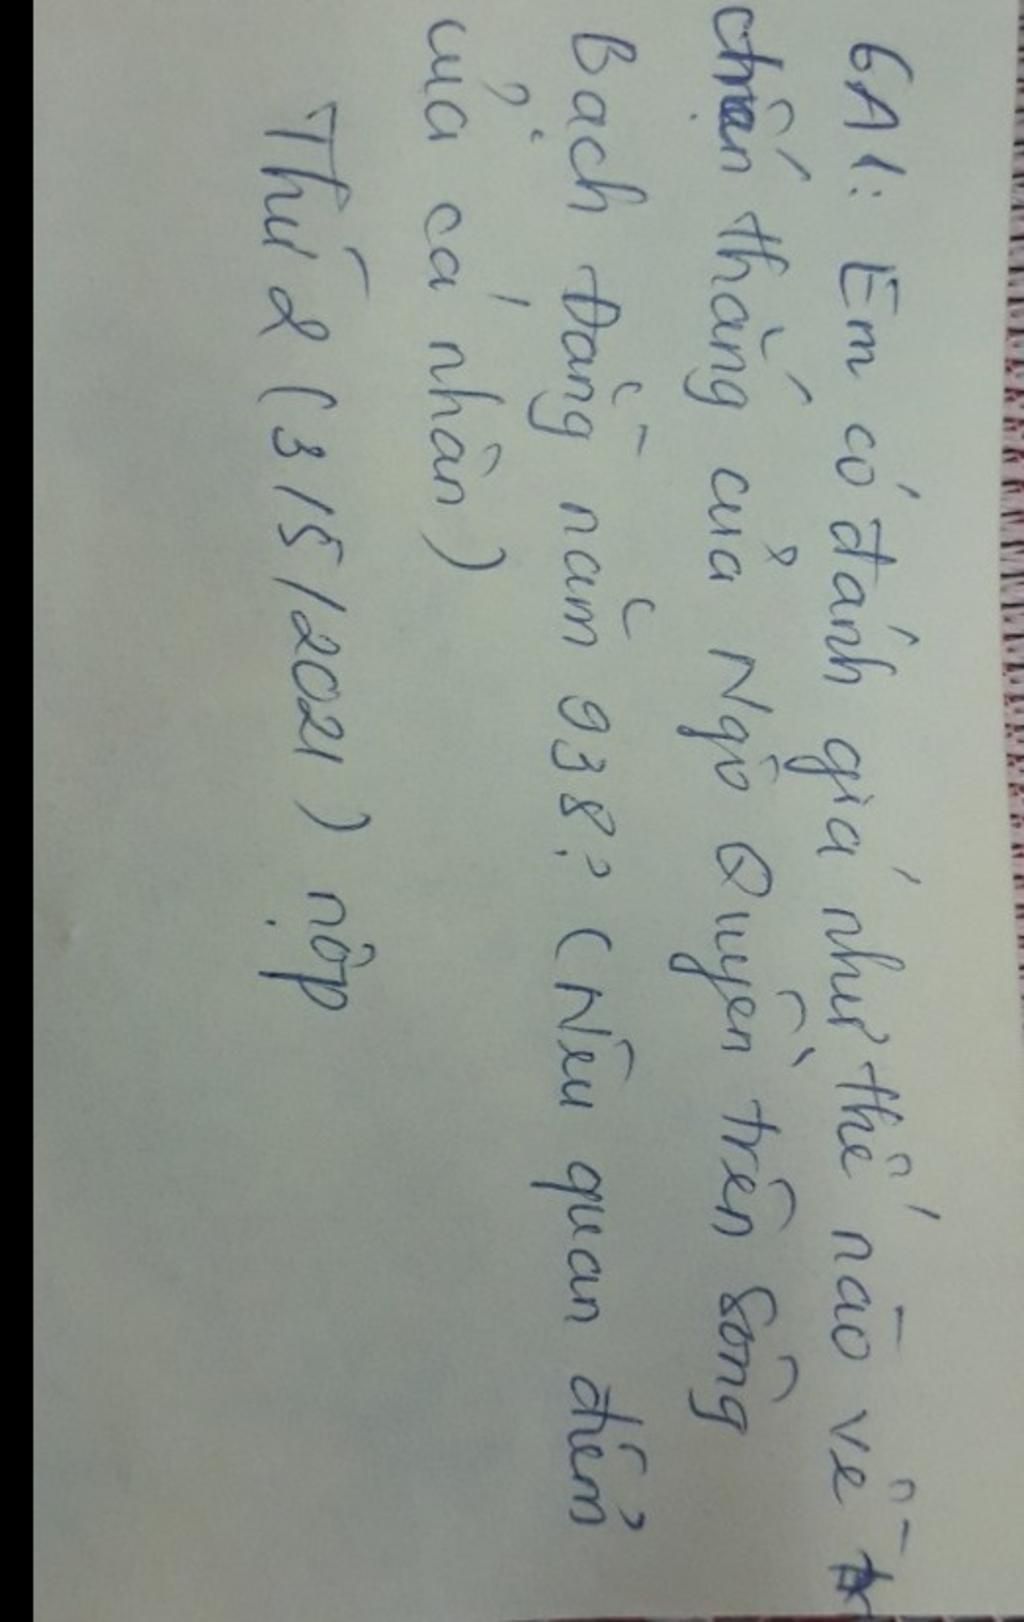 6A1: Em có đánh giá như thế nào về
chiến thắng của Ngô Quyền trên sông
Bạch Đằng năm 938? (Nêu quan điểm
của cá nhân)
Thứ 2 (3/5/2021) nộp